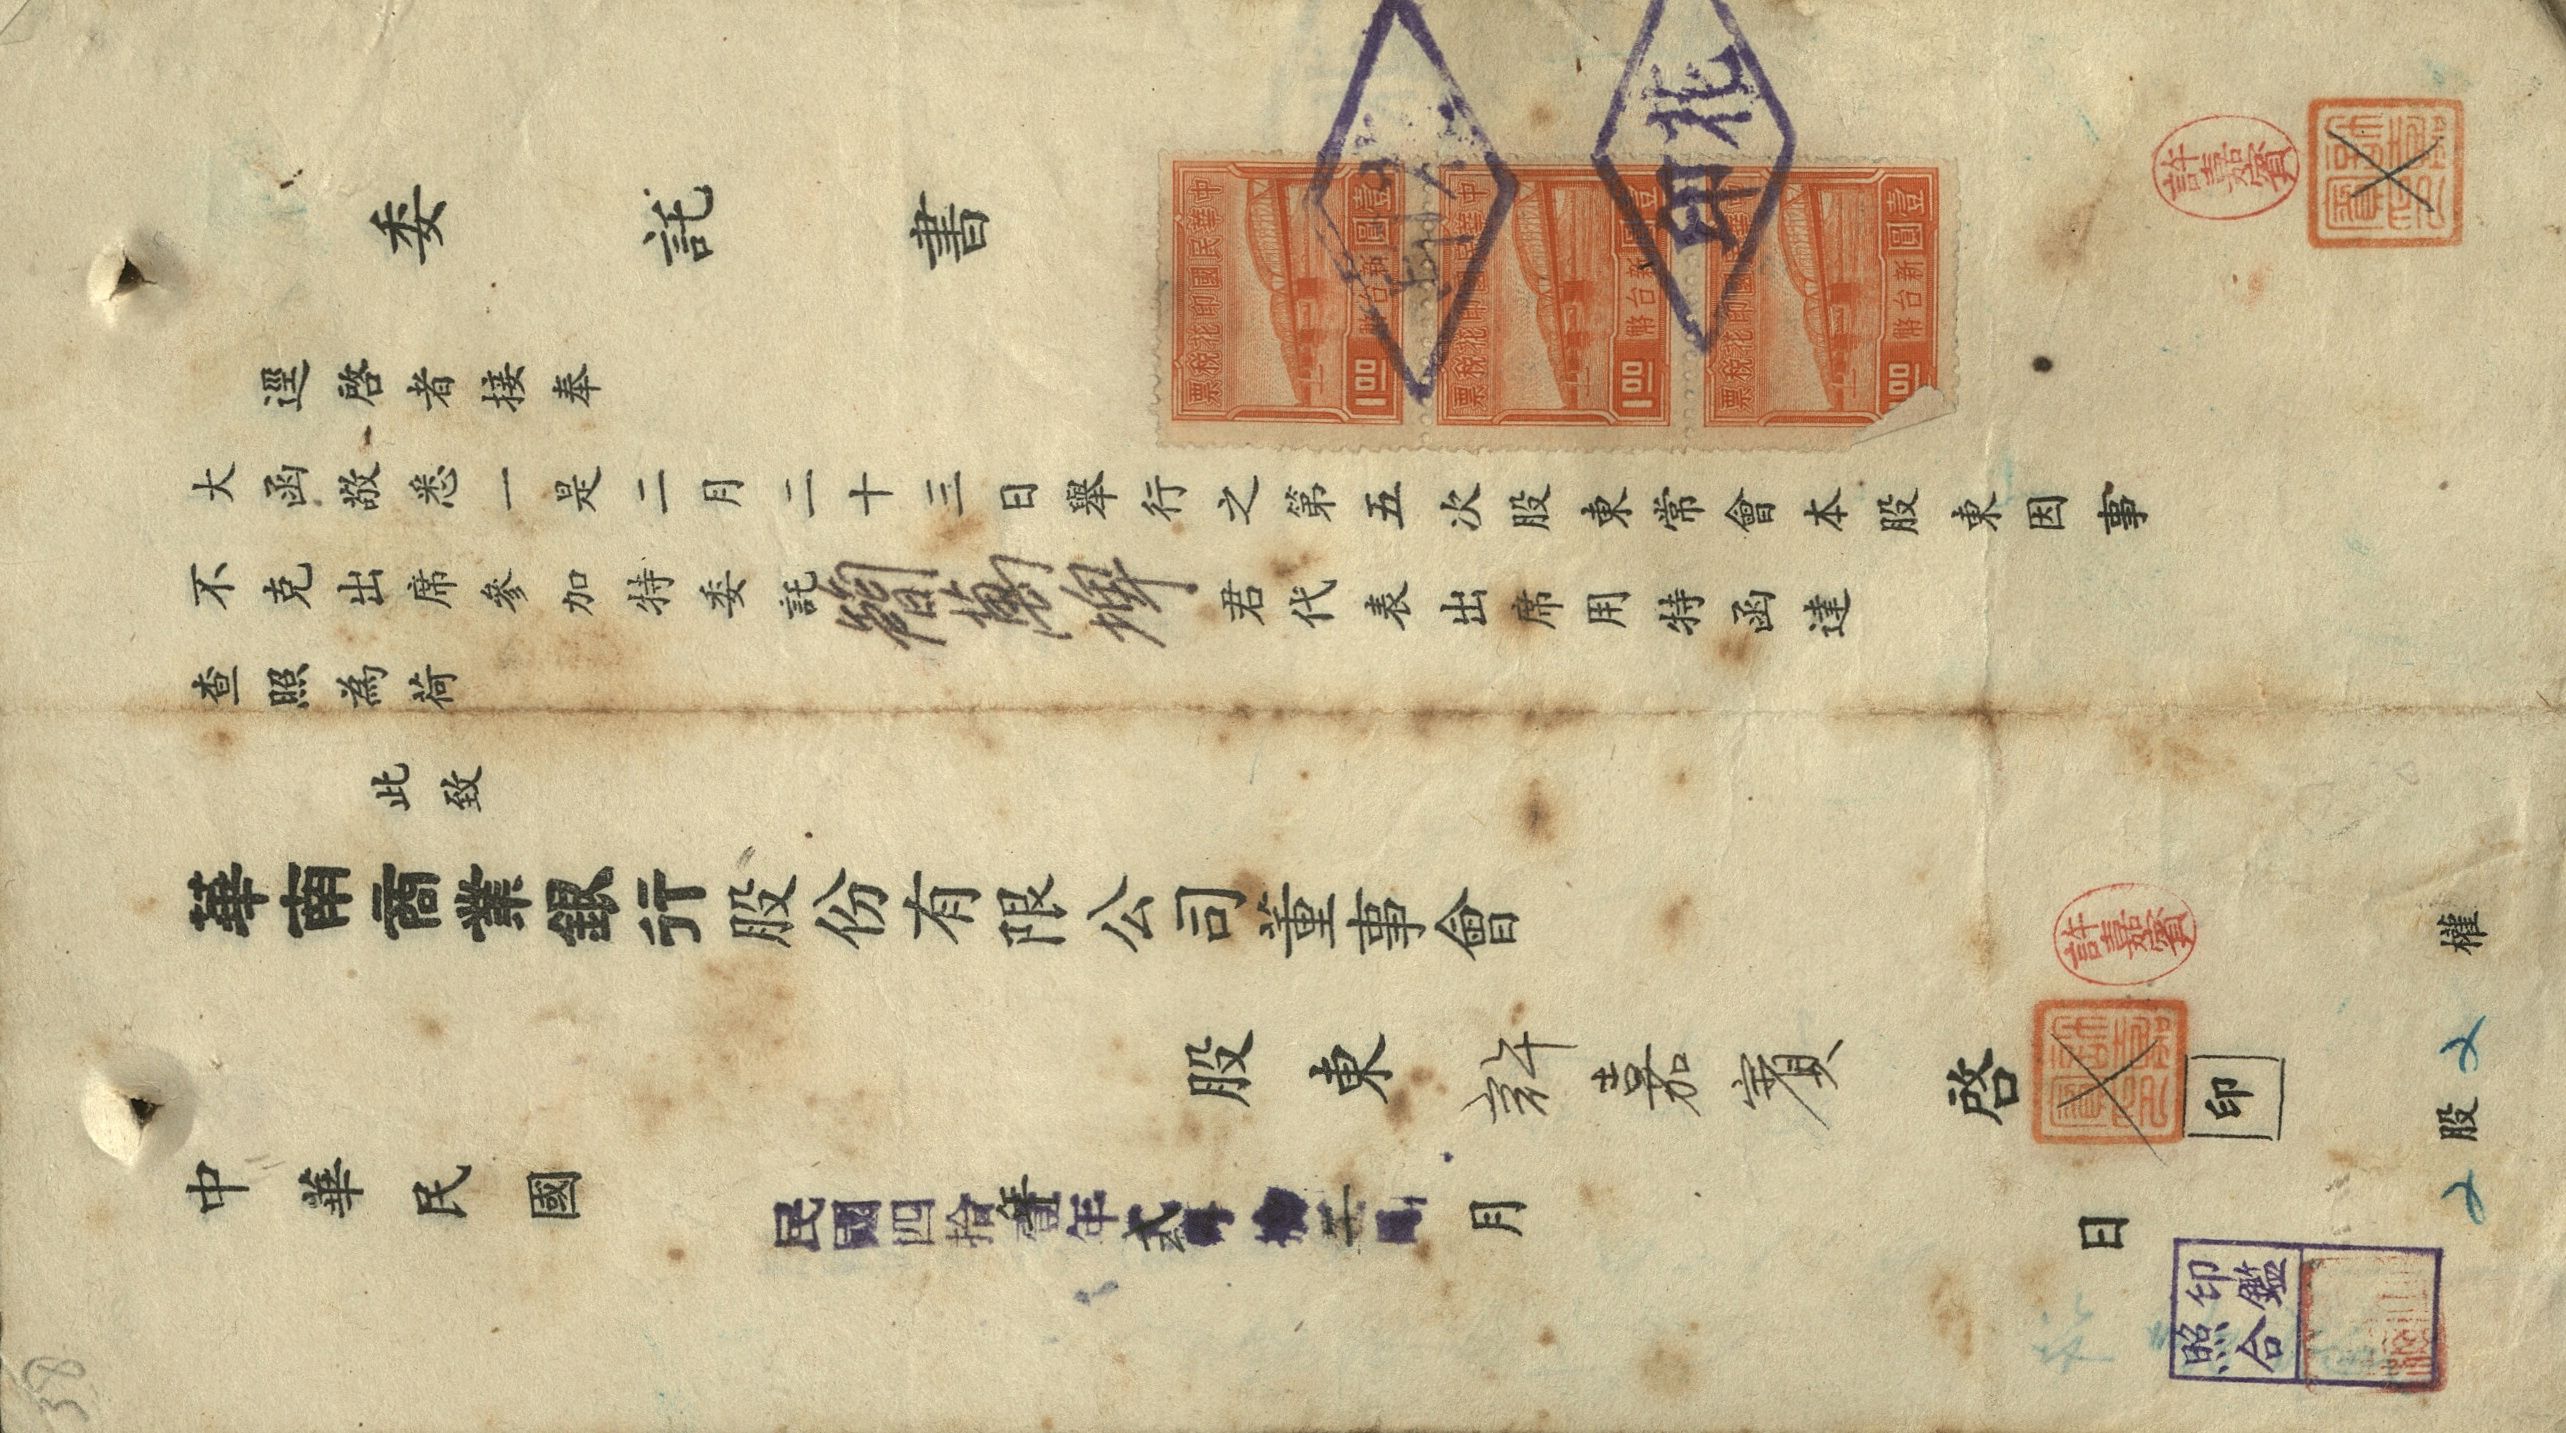 委託書
逕啓者接奉
大函敬悉一是二月二十三日舉行之第五次股東常會本股東因事
不克出席參加特委託簡萬焊君代表出席用特函達
查照為荷
此致
華南商業銀行股份有限公司董事會
股東許嘉賓啓
印
中華民國年月日
民國四拾壹年貳
股權
中華民國印花稅票
壹圓
新台幣
1.00
中華民國印花稅票
壹圓
新台幣
1.00
中華民國印花稅票
壹圓
新台幣
1.00
印花
許嘉賓
許嘉賓
印鑑
照合
38